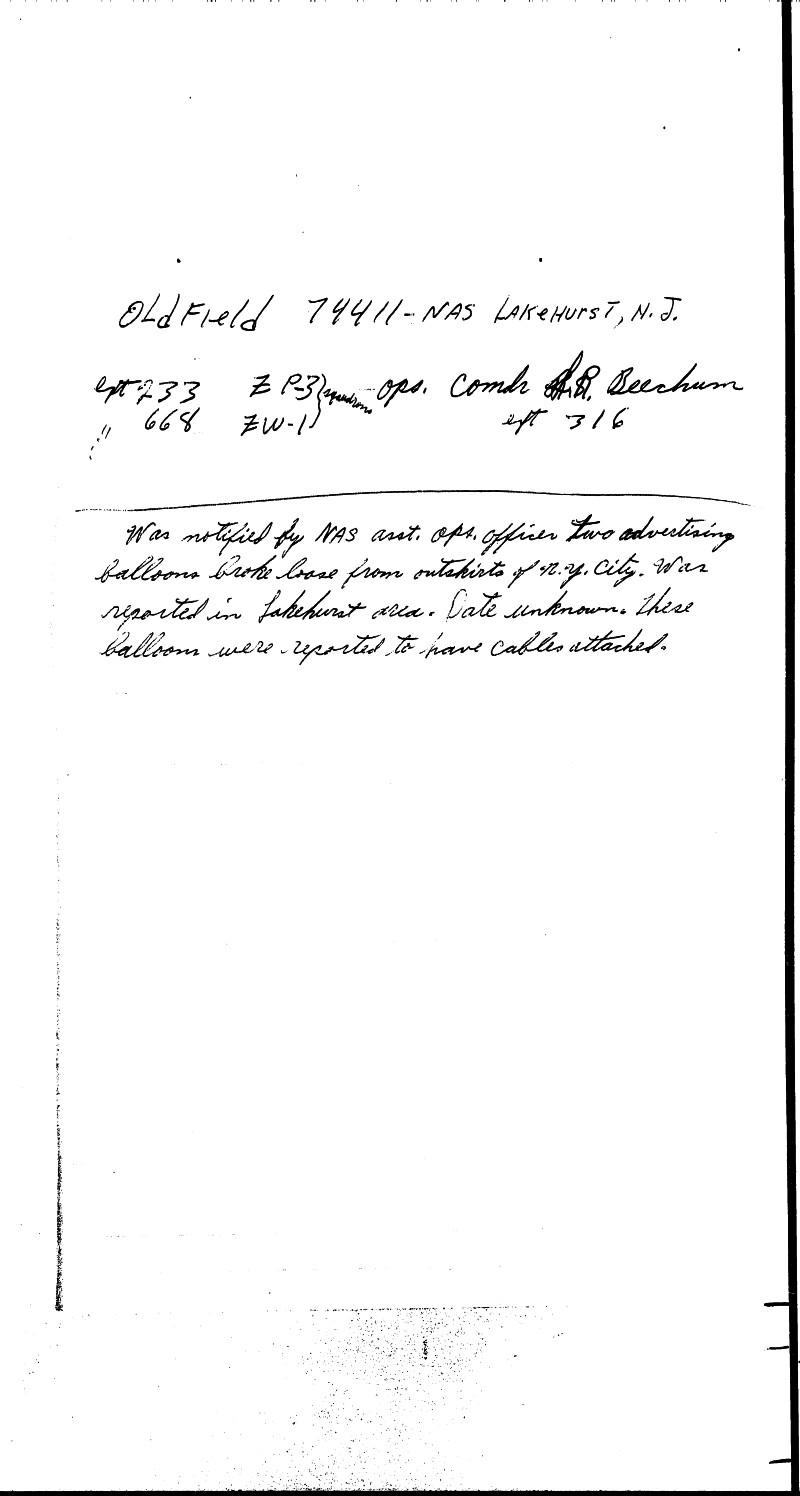 OLdField 74411 - NAS LAKeHurST, N.J.
ext 233 Z P-3 } squadrons - ops. Comdr R. Beechum
" 668 ZW-1 ext 316
Was notified by NAS asst. ops. officer two advertising
balloons broke loose from outskirts of N.Y. City. Was
reported in Lakehurst area. Date unknown. These
balloons were reported to have cables attached.